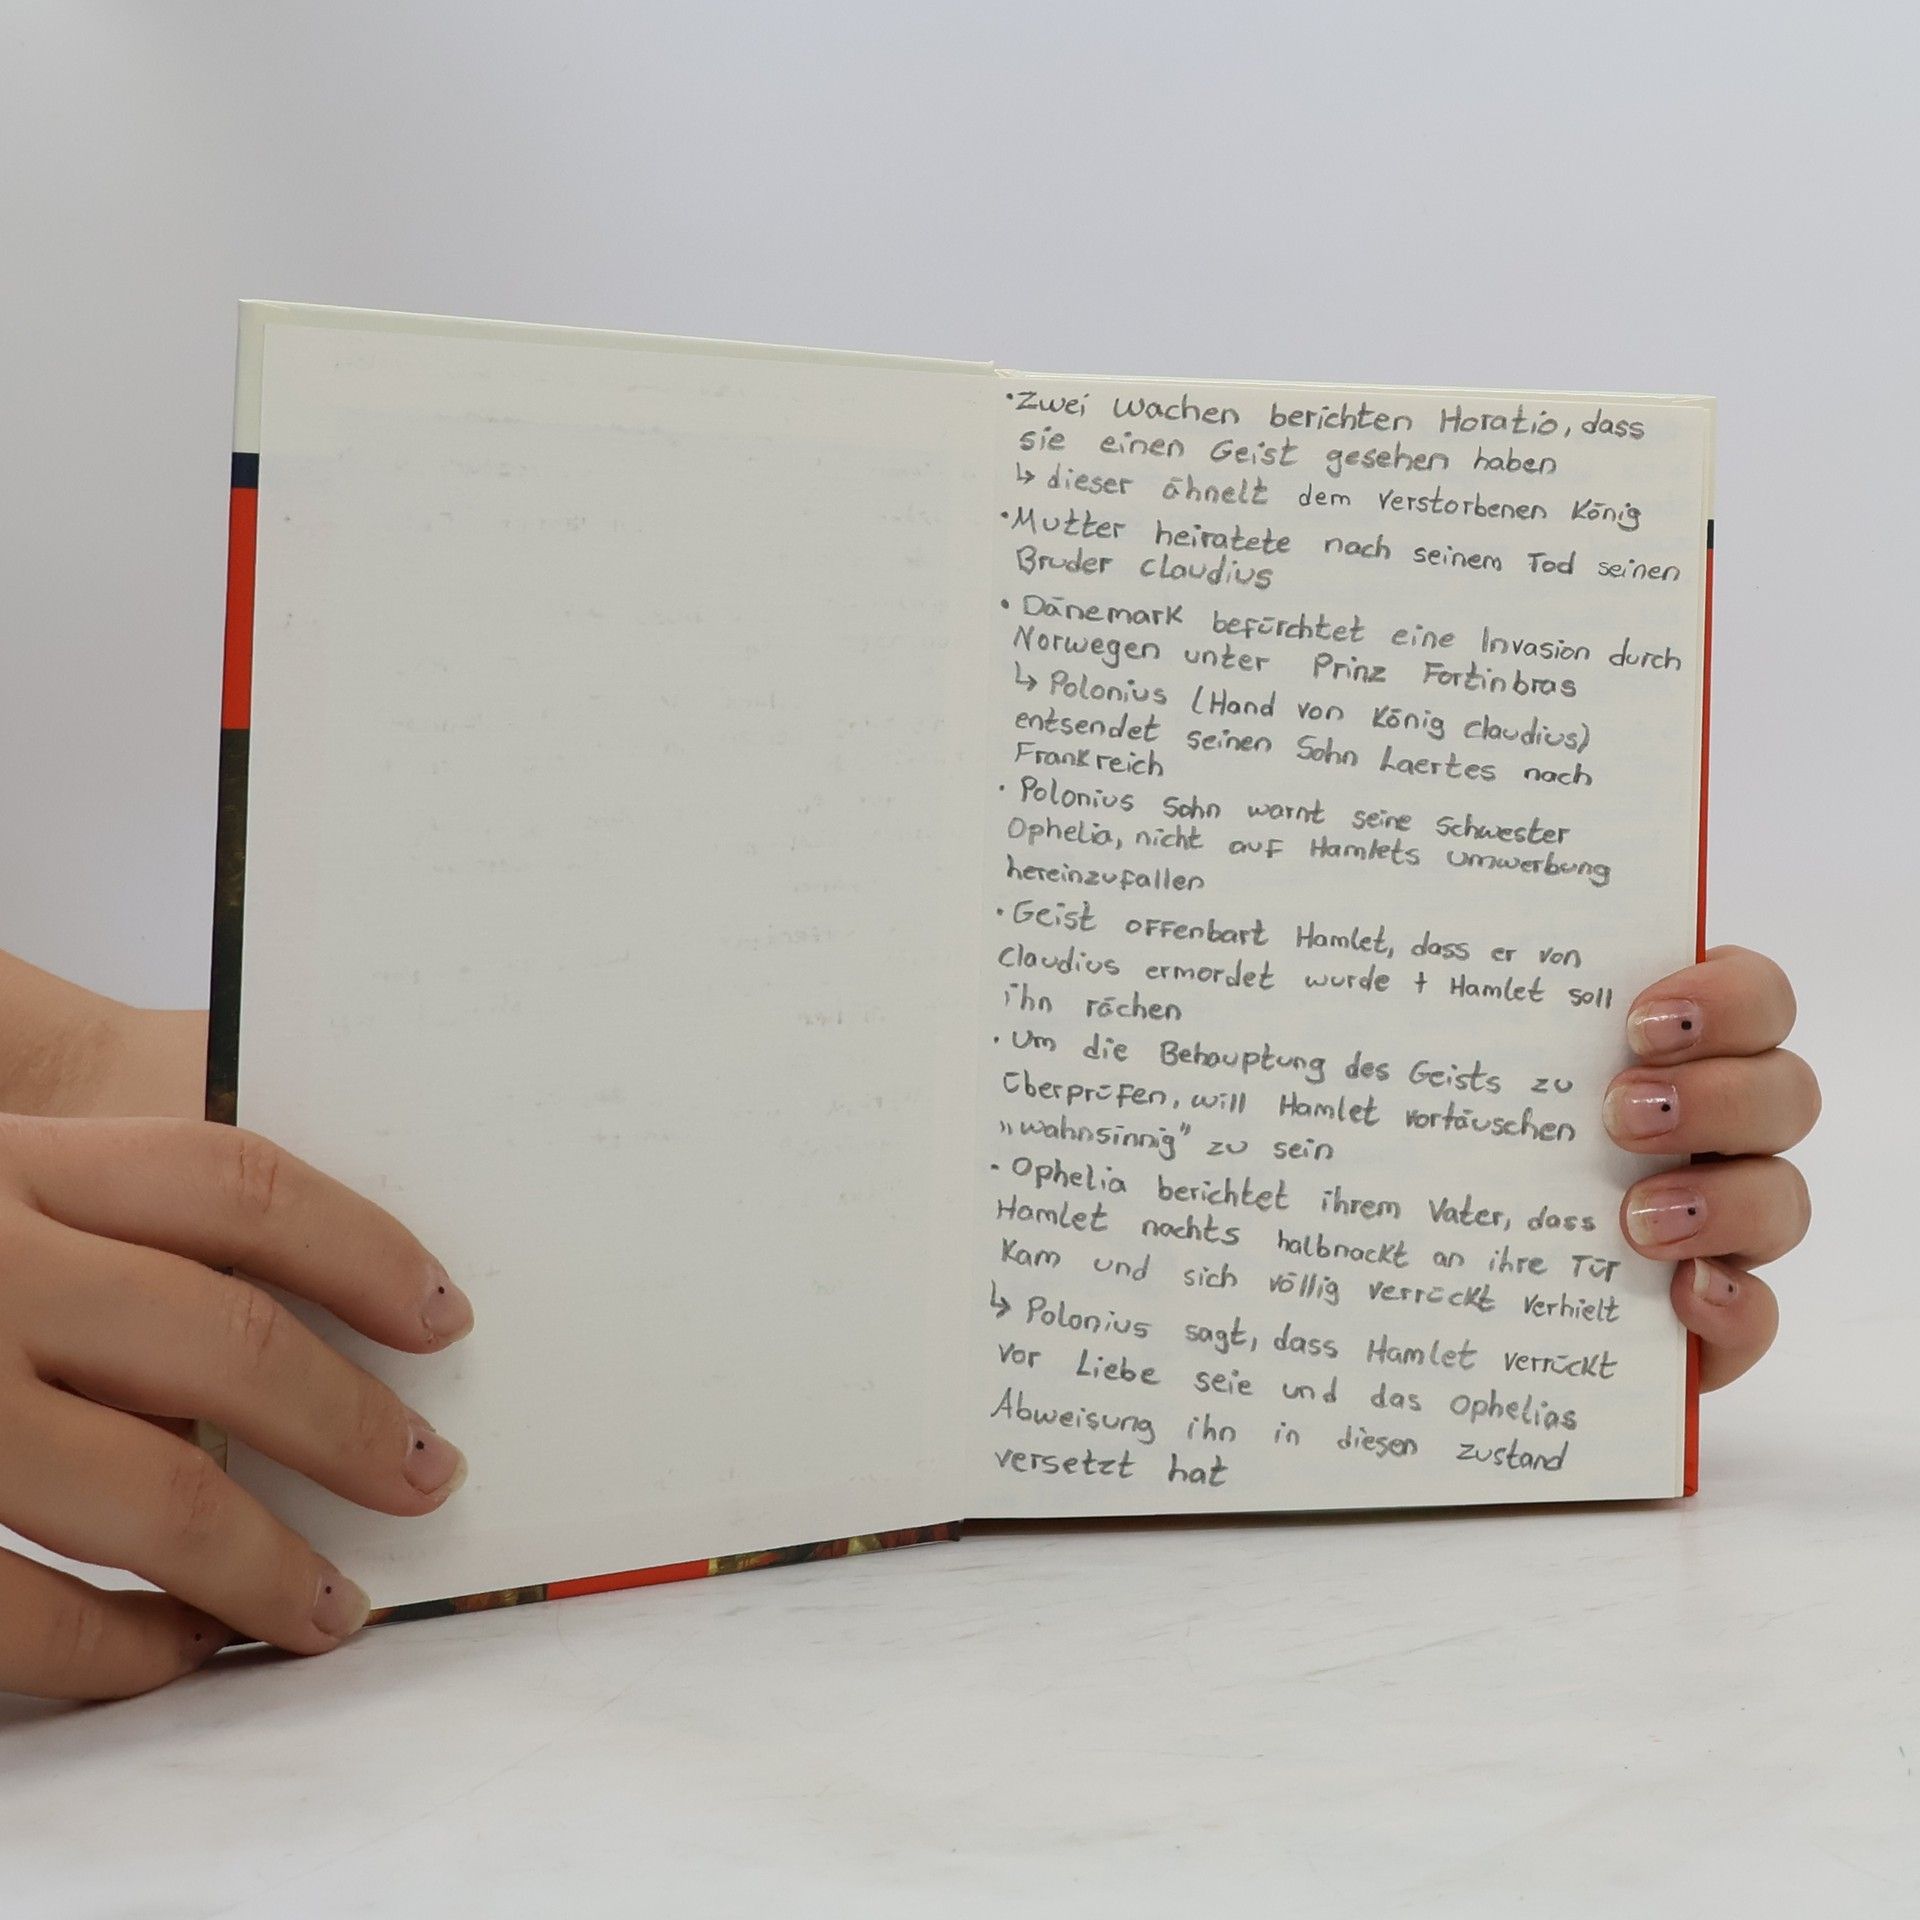 •Zwei Wachen berichten Horatio, dass
sie einen Geist gesehen haben
↳ dieser ähnelt dem verstorbenen König
•Mutter heiratete nach seinem Tod seinen
Bruder Claudius
• Dänemark befürchtet eine Invasion durch
Norwegen unter Prinz Fortinbras
↳ Polonius (Hand von König Claudius)
entsendet seinen Sohn Laertes nach
Frankreich
• Polonius Sohn warnt seine Schwester
Ophelia, nicht auf Hamlets Umwerbung
hereinzufallen
• Geist offenbart Hamlet, dass er von
Claudius ermordet wurde + Hamlet soll
ihn rächen
• Um die Behauptung des Geists zu
überprüfen, will Hamlet vortäuschen
„wahnsinnig" zu sein
• Ophelia berichtet ihrem Vater, dass
Hamlet nachts halbnackt an ihre Tür
kam und sich völlig verrückt verhielt
↳ Polonius sagt, dass Hamlet verrückt
vor Liebe seie und das Ophelias
Abweisung ihn in diesen zustand
versetzt hat